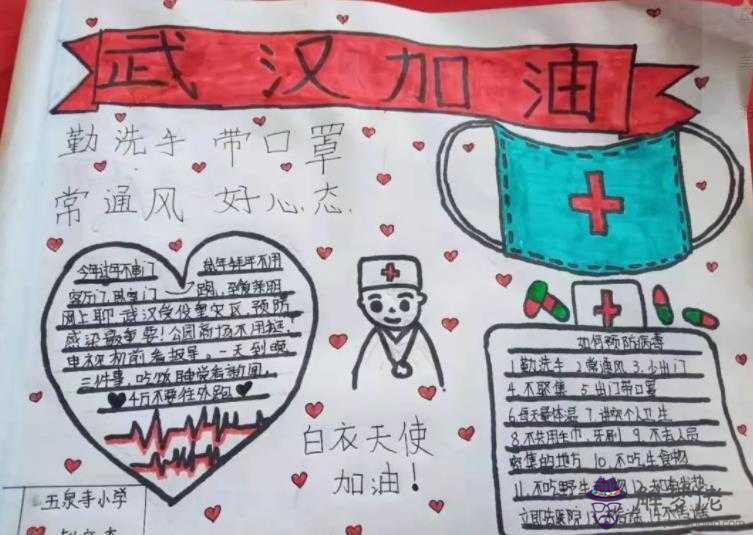 武汉加油
勤洗手 带口罩
常通风 好心态.
今年过年不串门
客厅门
网上聊 武汉受役重灾区,预防
感染最重要!公园商场不用逛,
电视机前看报导。一天到晚
三件事,吃饭睡觉看新闻。
4万不要往外跑
白衣天使
加油!
如何预防病毒
1.勤洗手 2.常通风 3.少出门
4.不聚集 5.出门带口罩
6.每天量体温 7.讲究个人卫生
8.不共用毛巾、牙刷 9.不去人员
密集的地方 10.不吃生食物
11.不吃野生
立即去医院
五泉寺小学